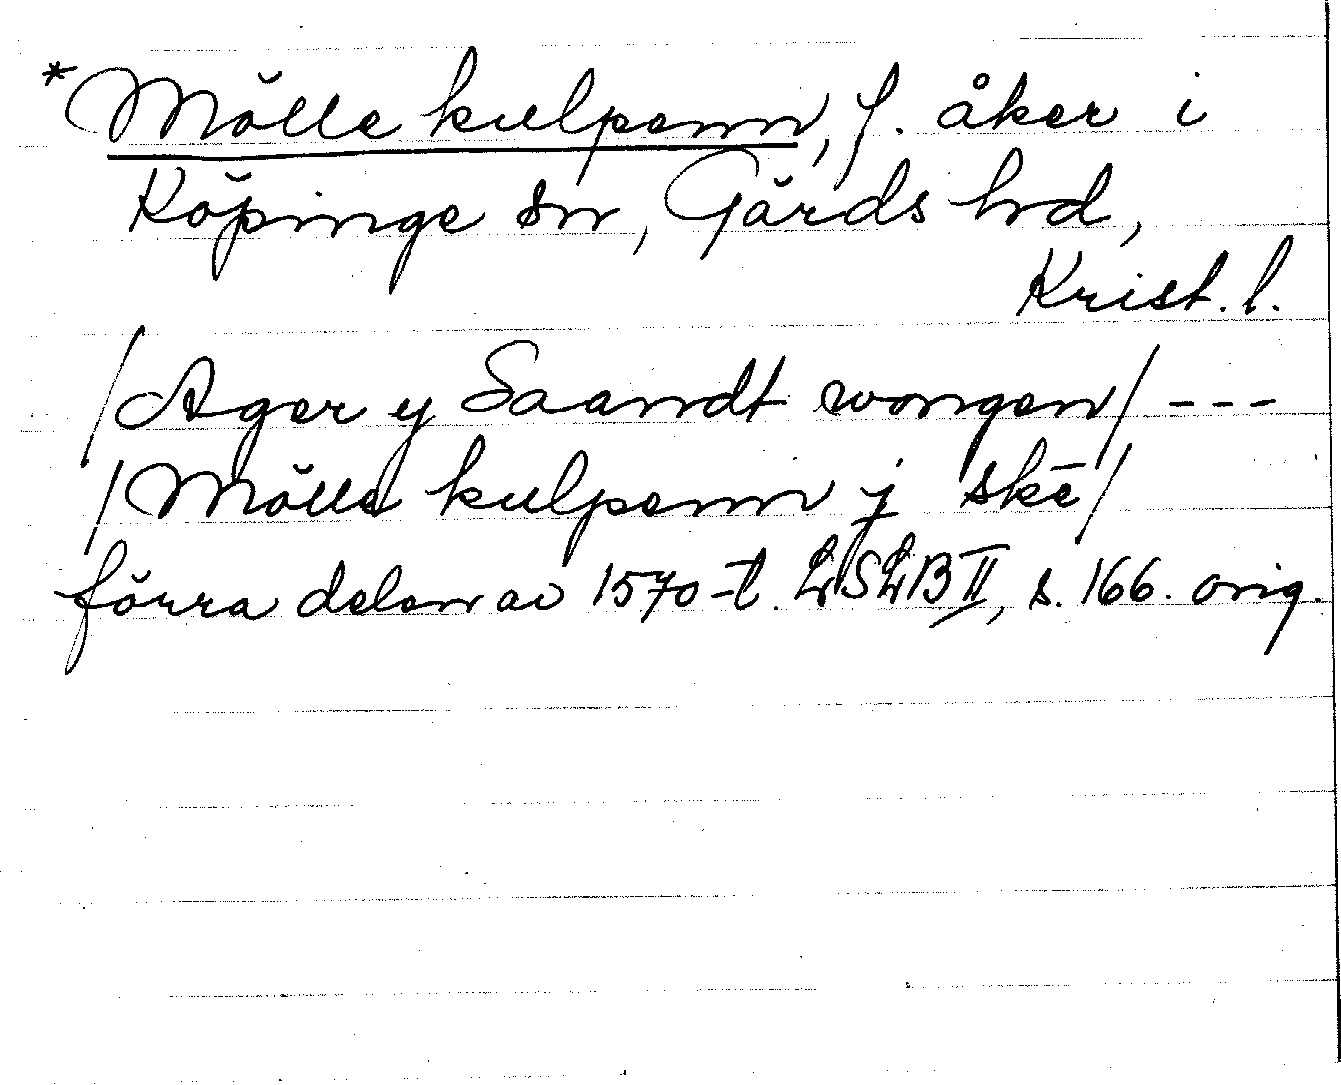 *Mölle kulpenn, f. åker i
Köpinge sn, Gärds hd,
Krist. l.
/Ager y Saandt wongen/ ---
/Mölle kulpenn j skē/
förra delen av 1570-t. LSLB II, s. 166. orig.